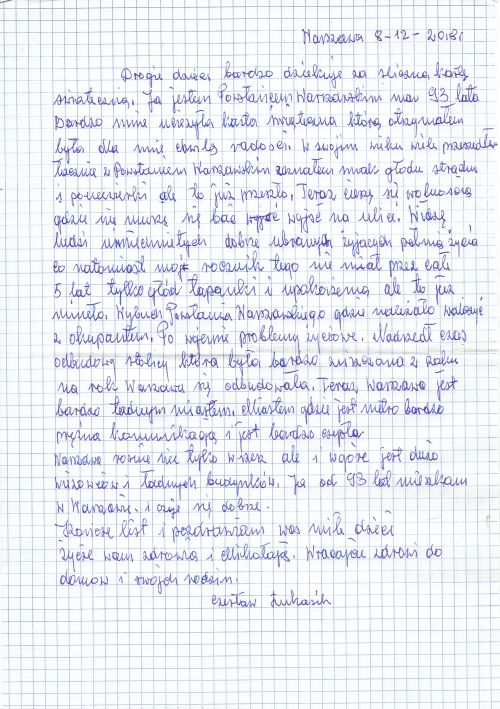 Warszawa 8-12-2018r
Drogie dzieci bardzo dziękuje za śliczną kartę
świąteczną. Ja jestem Powstańcem Warszawskim mam 93 lata
Bardzo mnie ucieszyła karta świąteczna którą otrzymałem
była dla mnie chwilą radości. W swojim wieku wiele przeszedłem
łącznie z Powstaniem Warszawskim zaznałem smak głodu strachu
i poniewierki ale to już przeszło. Teraz cieszę się wolnością
gdzie nie muszę się bać wyjść na ulice. Widzę
ludzi uśmiechniętych dobrze ubranych żyjących pełnią życia
co natomiast mój rocznik tego nie miał przez całe
5 lat tylko głód łapanki i upokorzenia ale to już
mineło. Wybuch Powstania Warszawskiego gdzie należało walczyć
z okupantem. Po wojenne problemy życiowe. Nadszedł czas
odbudowy stolicy która była bardzo zniszczona z roku
na rok Warszawa się odbudowała. Teraz Warszawa jest
bardzo ładnym miastem. Miastem gdzie jest metro bardzo
ważna komunikacją i jest bardzo
Warszawa rośnie nie tylko wszesz ale i wzwyż jest dużo
wieżowców i ładnych budynków. Ja od 93 lat mieszkam
w Warszawie. i czuje się dobrze.
Kończe list i pozdrawiam was miłe dzieci
Życze wam zdrowia i Mikołaja. Wracajcie zdrowi do
domów i swojch rodzin.
Czesław Łukasik